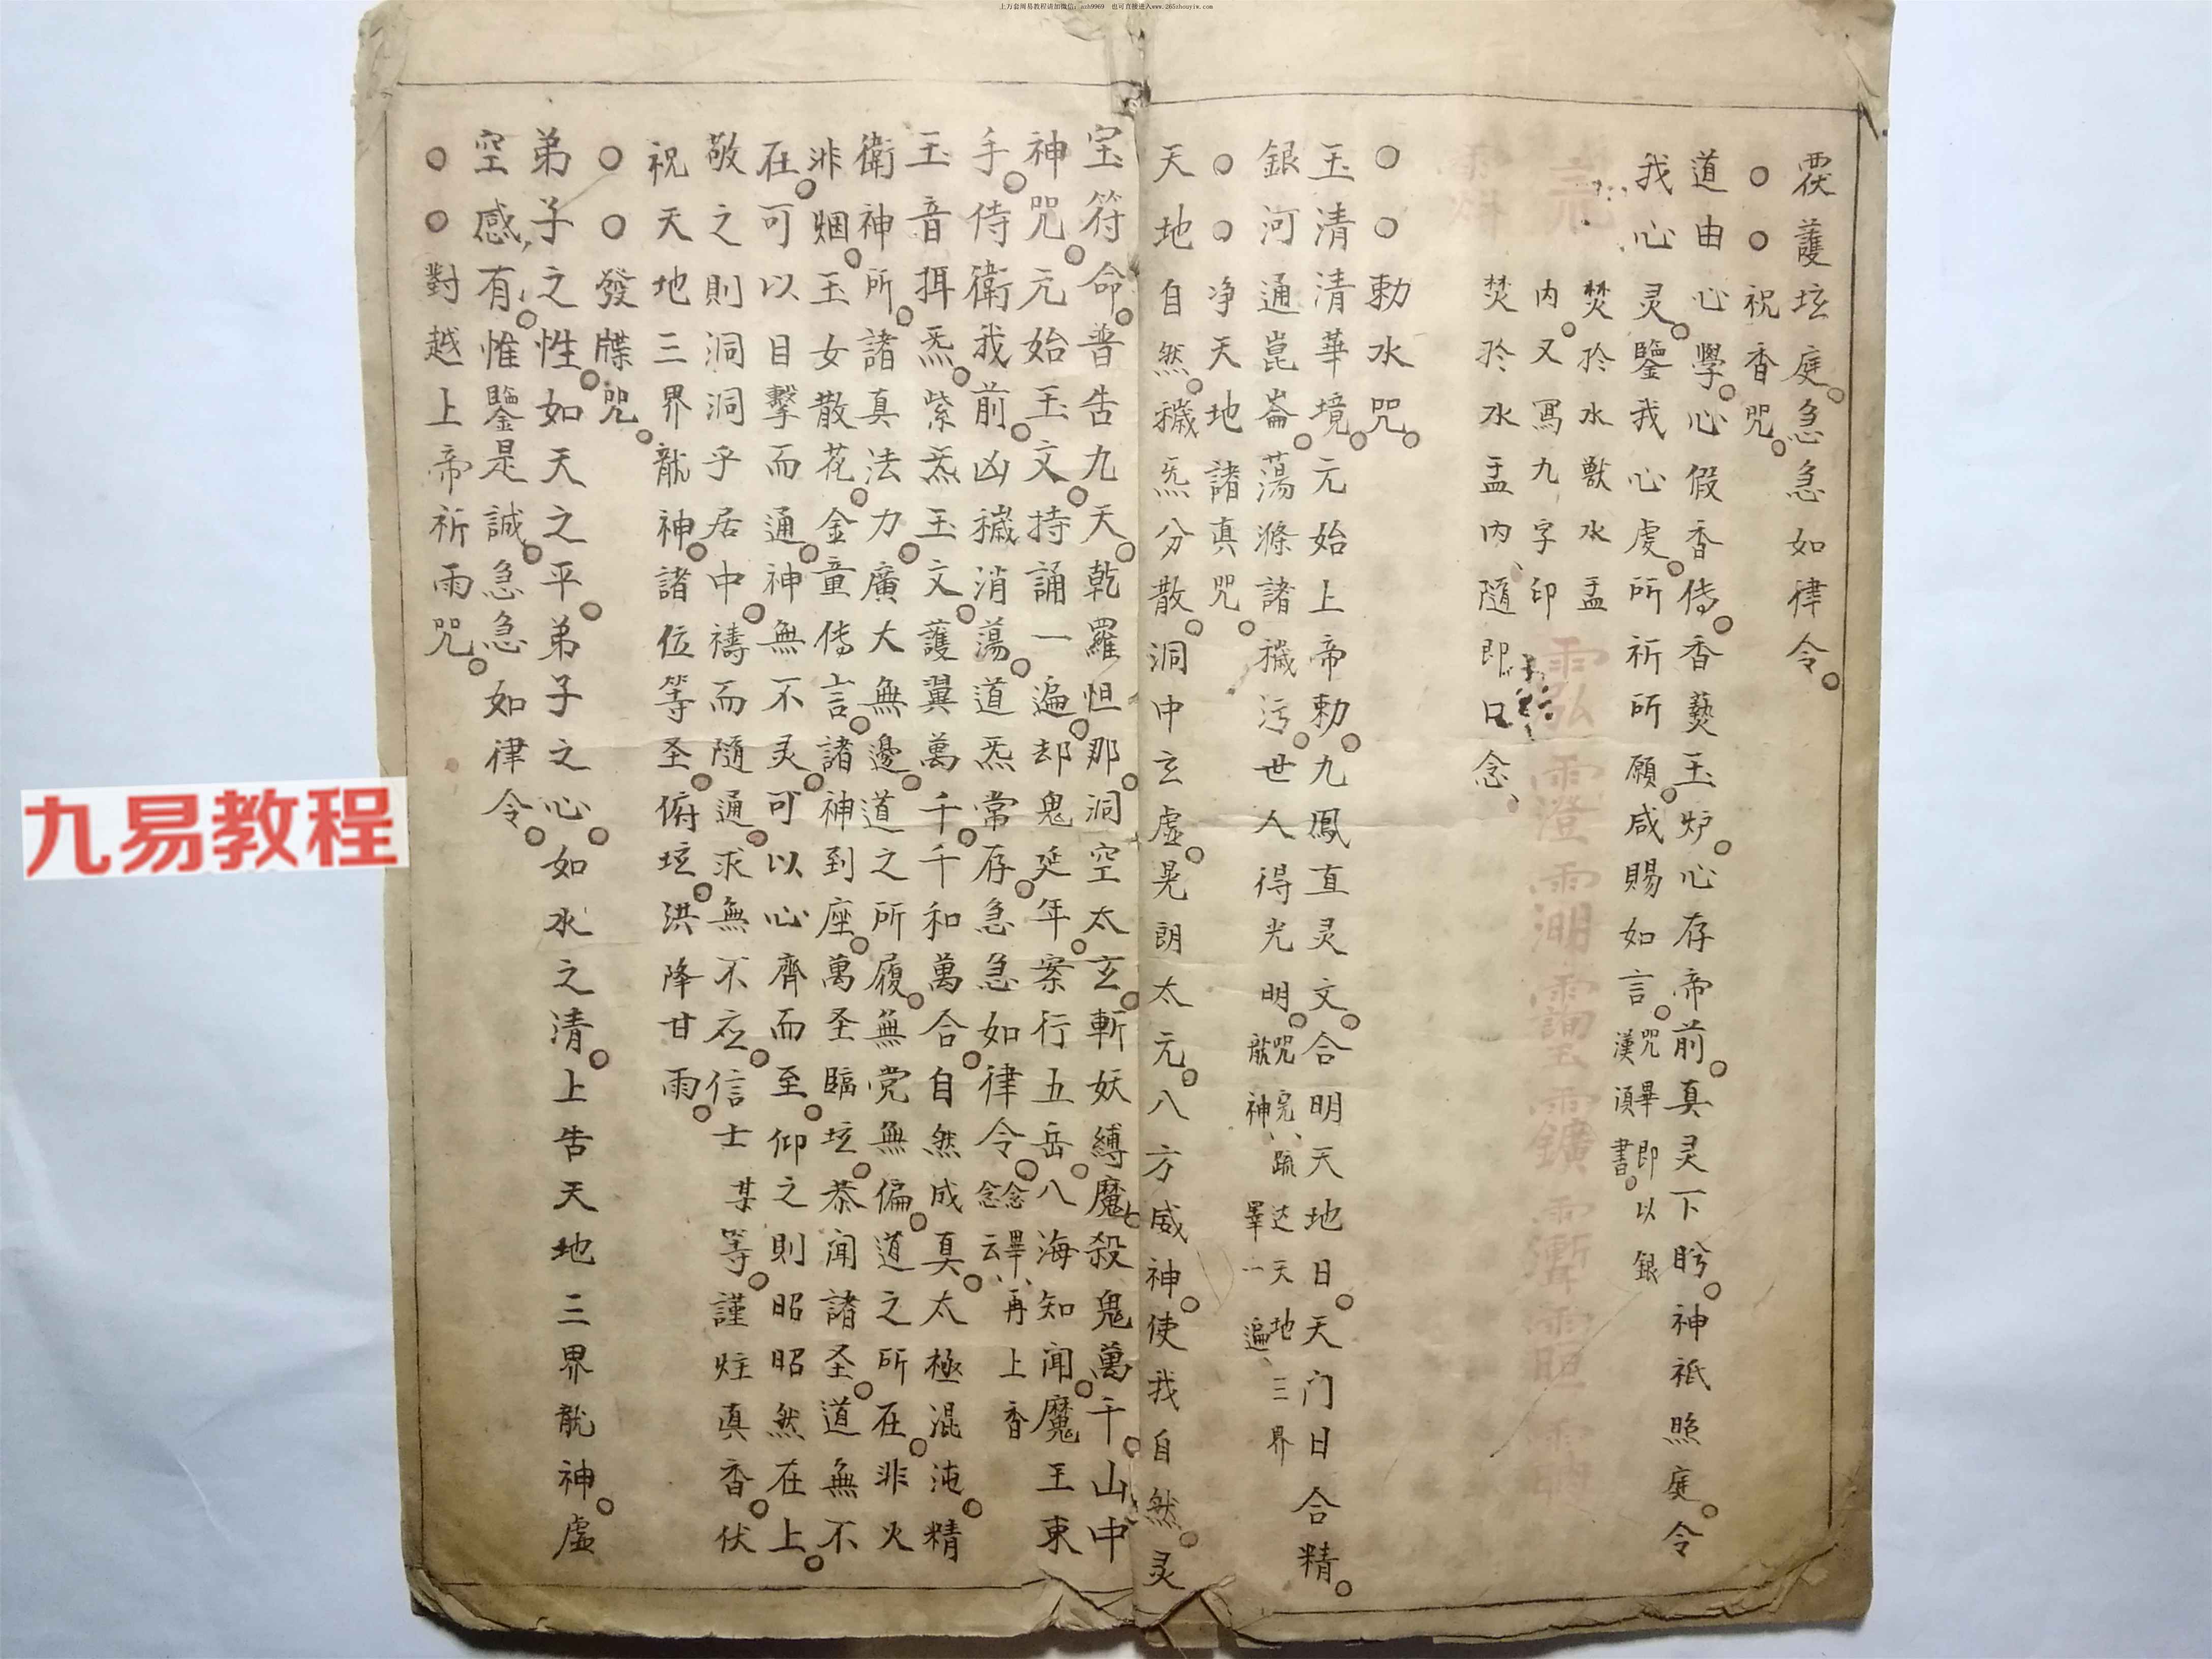 上万套周易教程请加微信：szh9969　也可直接进入www.265zhouyiw.com
護坛庭急急如律令
○○祝香咒
道由心學心假香傳香爇玉炉心存帝前真灵下盻神祇照庭令
我心灵鑒我心虔所祈所願咸賜如言咒畢即以銀
漢湏書
焚扵水獸水盂
内又寫九字印
焚扵水盂内隨即口念
○○勅水咒
玉清清華境元始上帝勅九鳳直灵文合明天地日天门日合精
銀河通崑崙蕩滌諸穢污世人得光明咒完疏达天地三界
龍神畢一遍
○○净天地諸真咒
天地自然穢炁分散洞中玄虛晃朗太元八方威神使我自然灵
宝符命普告九天乾羅怛那洞空太玄斬妖縛魔殺鬼萬千山中
神咒元始玉文持誦一遍却鬼延年案行五岳八海知闻魔王束
手侍衛我前凶穢消蕩道炁常存急急如律令念畢再上香
念云
玉音珥炁紫炁玉文護翼萬千千和萬合自然成真太極混沌精
衛神所諸真法力廣大無邊道之所履無党無偏道之所在非火
非烟玉女散花金童傳言諸神到座萬圣臨坛恭闻諸圣道無不
在可以目擊而通神無不灵可以心齊而至仰之則昭昭然在上
敬之則洞洞乎居中禱而隨通求無不应信士某等謹炷真香伏
祝天地三界龍神諸位等圣俯坛洪降甘雨
○○發牒咒
弟子之性如天之平弟子之心如水之清上告天地三界龍神虛
空感有惟鑒是誠急急如律令
○○對越上帝祈雨咒
九易教程